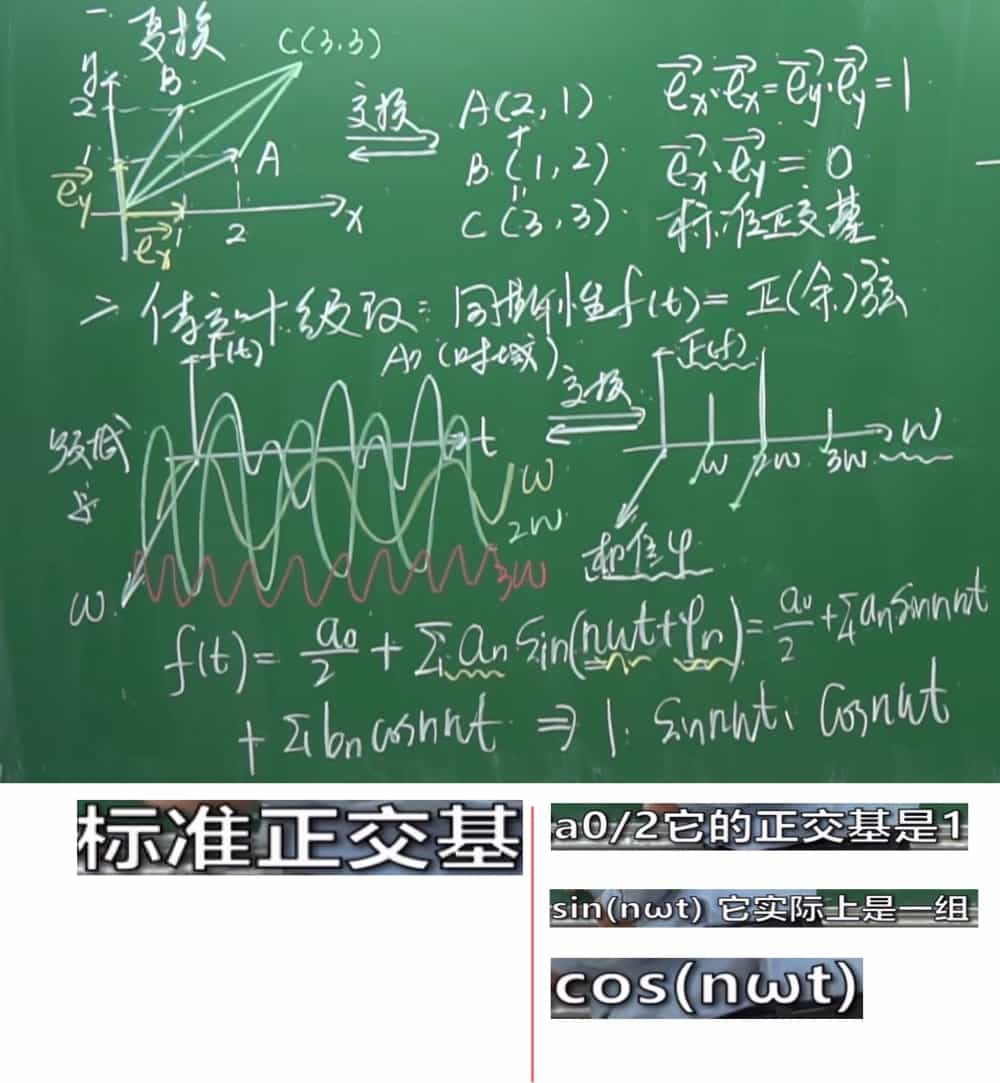 一. 变换
C(3,3)
y
2
B
1
A
e⃗y
e⃗x
1
2
x
变换
A(2,1)
+
B(1,2)
॥
C(3,3)
e⃗x·e⃗x=e⃗y·e⃗y=1
e⃗x·e⃗y=0
标准正交基
二 傅立叶级数: 周期性f(t)=正(余)弦
f(t)
(时域)
变换
F(f)
频域
t
ω
2ω
3ω
ω
ω
2ω
3ω
ω
相位φ
f(t)= a0/2 + Σ an sin(nωt+φn)= a0/2 +Σ an sin nωt
+ Σ bn cos nωt ⇒ 1. sin nωt、 cos nωt
标准正交基
a0/2它的正交基是1
sin(nωt) 它实际上是一组
cos(nωt)